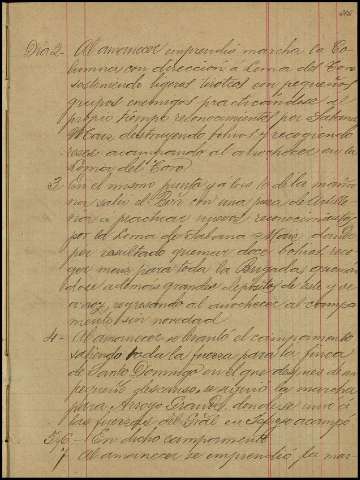 Día 2- Al amanecer emprendió marcha la Co-
lumna con dirección á Loma del Toro
sosteniendo ligeros tiroteos con pequeños
grupos enemigos practicándose al
propio tiempo reconocimientos por Sabana
Maiz, destruyendo bohíos y recogiendo
reses acampando al anochecer en la
Loma del Toro
3 En el mismo punto y a las 10 de la maña
na salió el Bón con una pieza de Artille
ría á practicar nuevos reconocimientos
por la Loma de Sabana Maiz, dando
por resultado quemar doce bohíos, reco
ger maiz para toda la Brigada, queman
dose ademas grandes depósitos de este y
arroz, regresando al anochecer al campa
mento sin novedad
4- Al amanecer se levantó el campamento
saliendo toda la fuerza para la finca
de Santo Domingo en el que despues de un
pequeño descanso, se siguió la marcha
para Arroyo Grande, donde se unió a
las fuerzas del Gral en Jefe y acampó
5 y 6 - En dicho campamento
7 Al amanecer se emprendió la mar-